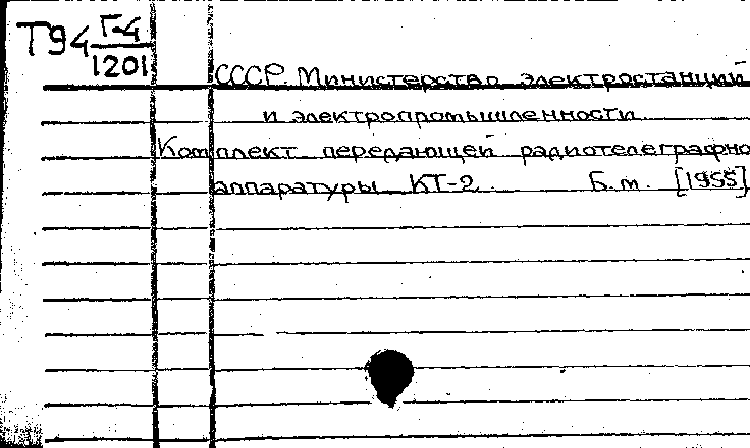 Т94 Г-4
1201
СССР. Министерство электростанций
и электропромышленности
Комплект передающей радиотелеграфно
аппаратуры КТ-2. Б.м. [1955]